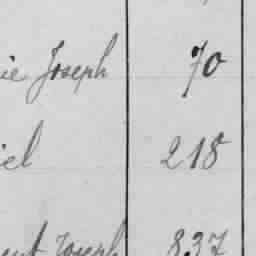 ie Joseph 70
iel 218
ent Joseph 837